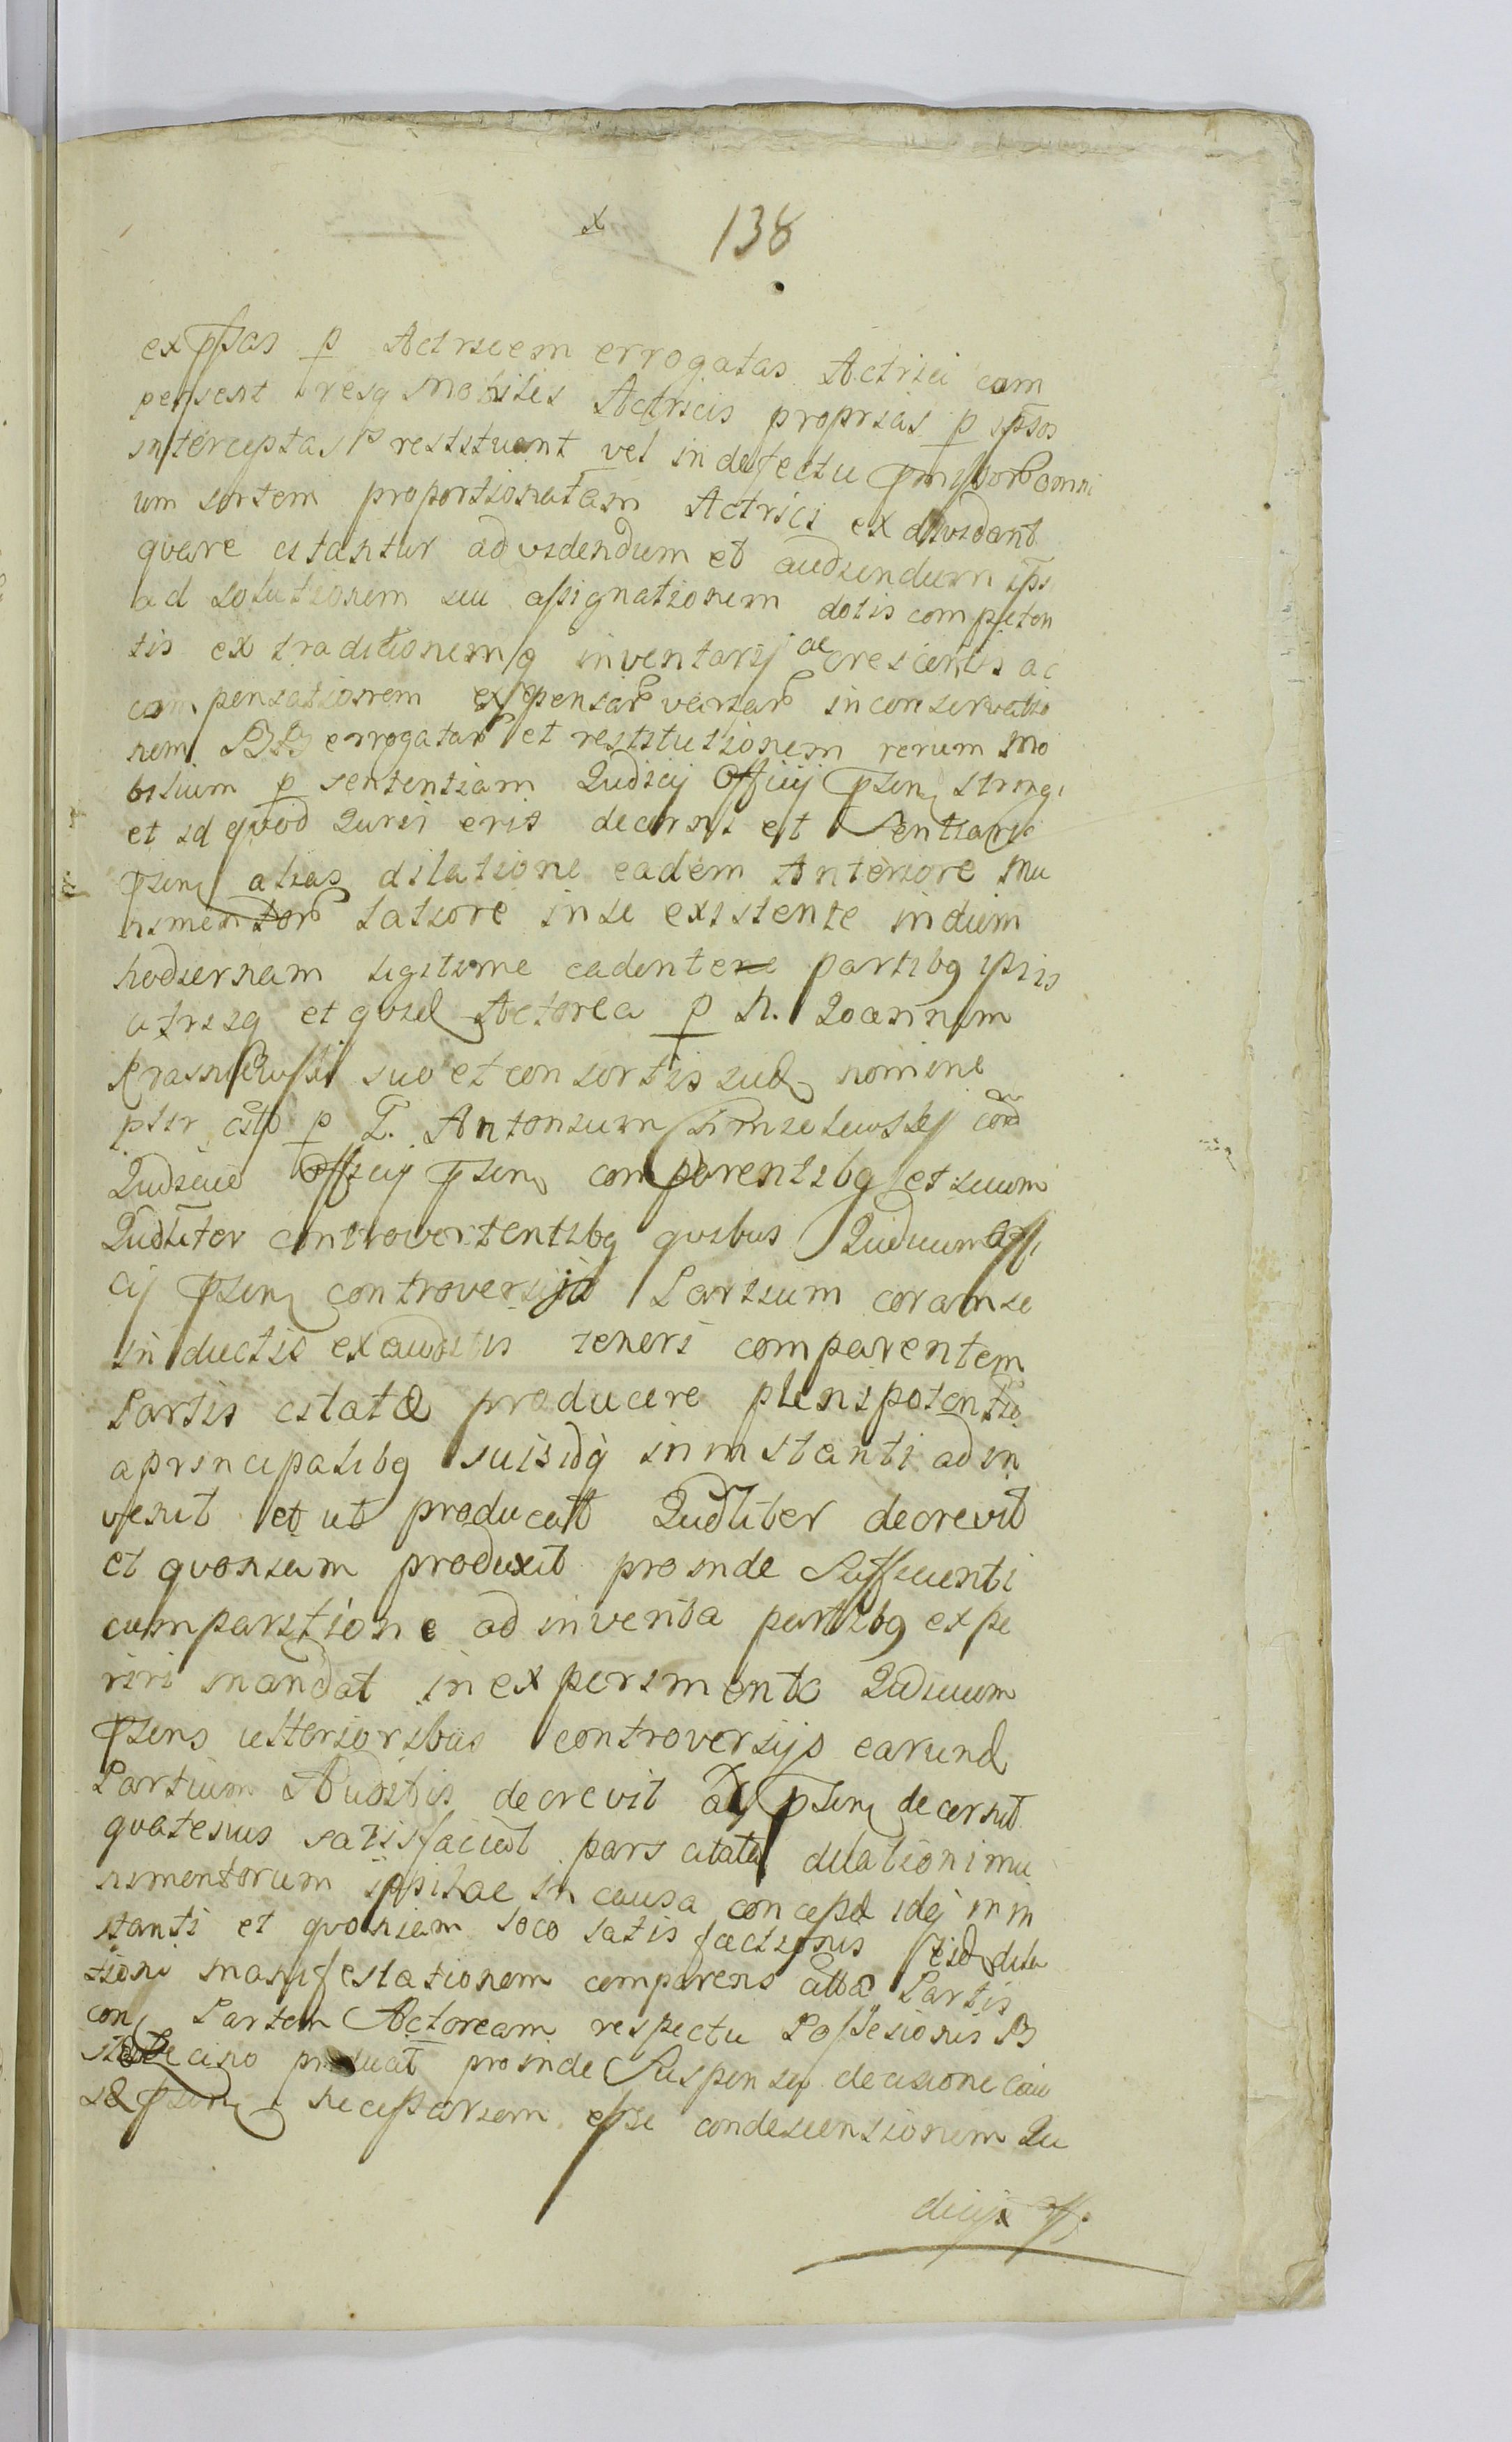 x 138
expssas p Actricem errogatas Actrici com
pensent resq mobiles Actricis proprias p ipsos
interceptas restituant vel in defectu omni
um sortem proportionatam Actrici ex dividant
quare citantur ad videndum et audiendum ips
ad solutionem seu assignationem dotis competen
tis extraditionemq inventarij ac crescentis ac
compensationem expensar versar in conservatio
nem errogatar et restitutionem rerum mo
bilium p sententiam Judicij Officij psen stringi
et id quod Juri eris decerni et Sententiari
psen alias dilatione eadem Anteriore mu
nimentor latiore in se existente in diem
hodiernam legitime cadentere partibq ipsis
utrisq et quid Actorea p N. Joannem
suo et consortis suæ nomine
p G. Antonium cor
Judicio Officij psens comparentibq et suum
Judliter controvertentibq quibus Judicium Offi
cij psen controversijs Partium coram se
inductis exauditis teneri comparentem
Partis citatæ producere plenipotentio
a principalibq suis idq in instanti ad in
venit et ut producat Judliter decrevit
et quoniam produxit proinde Sufficienti
comparitione ad inventa partibq expe
riri mandat in experimento Judicium
psens ulterioribus controversijs earund
Partium Auditis decrevit psen decernit
quatenus satisfaciat pars citata dilationi mu
nimentorum in causa concepæ idq in in
stanti et quoniam loco satisfactionis eid dila
tioni manifestationem comparens Partis
con Partem Actoream respectu Possessionis B
produat proinde Suspensa decisione cau
sæ psen necessariam esse condescensionem Ju
dicij Off: